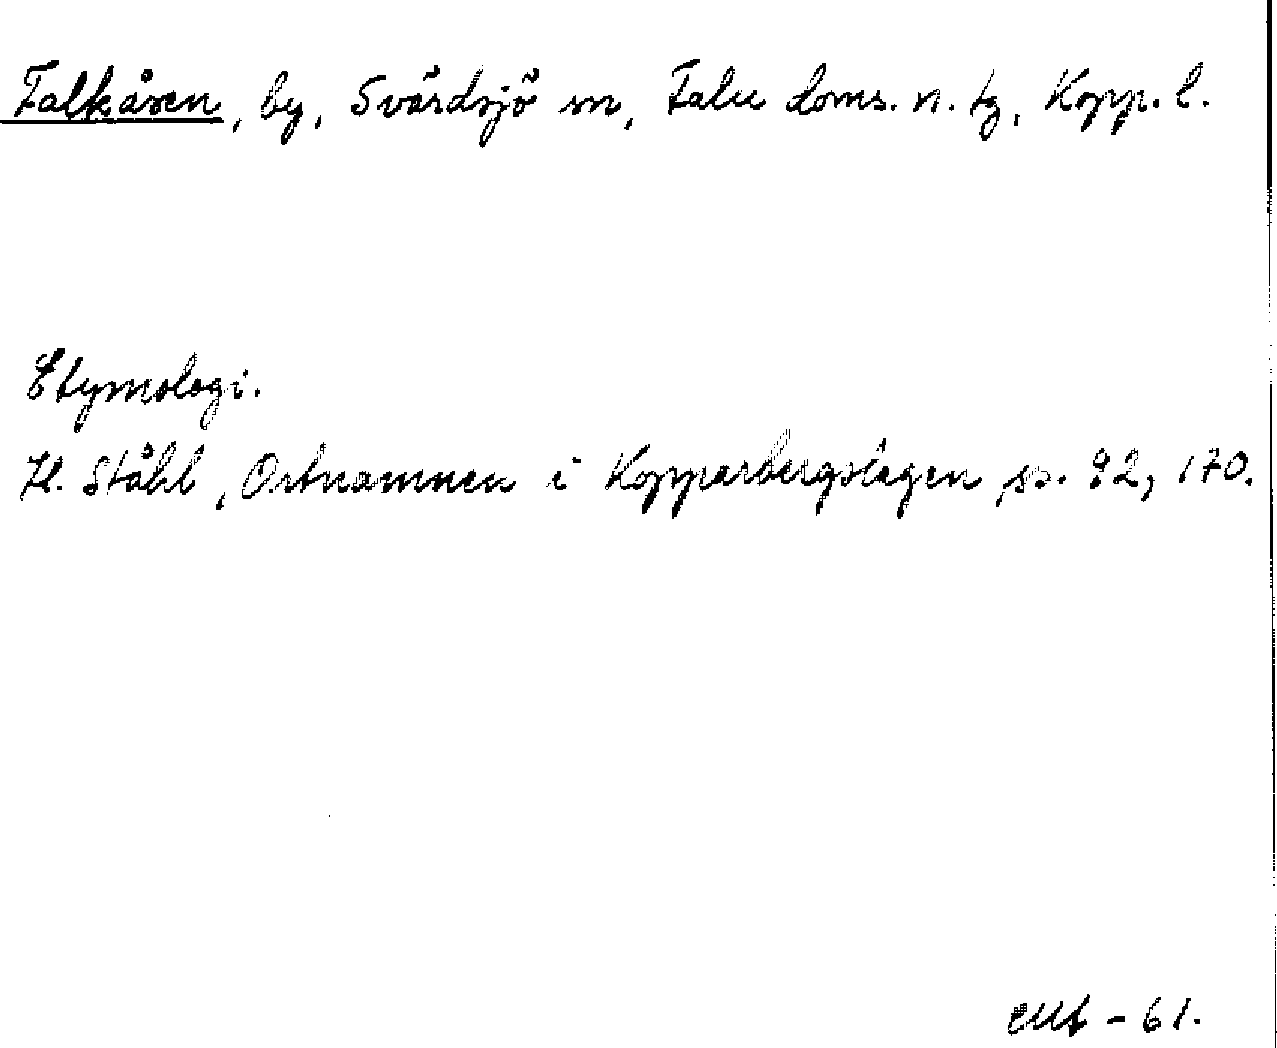 Falkåsen, by, Svärdsjö sn, Falu doms. n. tg, Kopp. l.
Etymologi.
H. Ståhl, Ortnamnen i Kopparbergslagen s. 92, 170.
- 61.